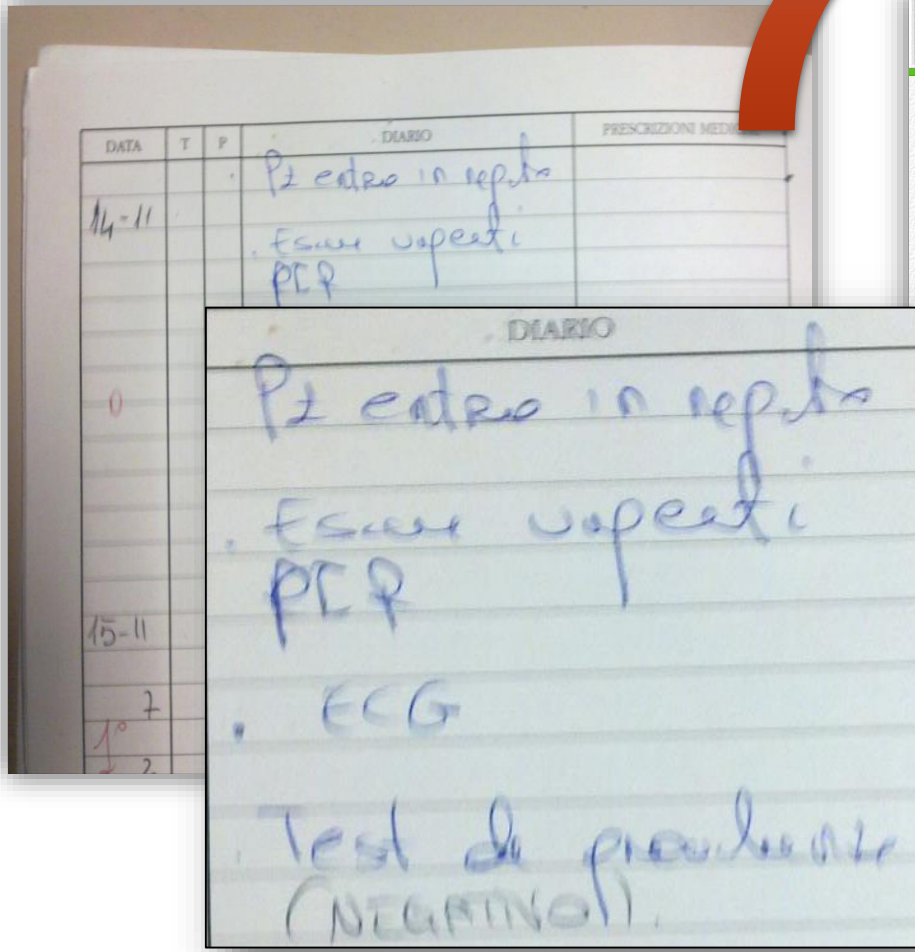 DATA T P DIARIO PRESCRIZIONI
Pz entra in rep.to
14-11
. Esami urgenti
PCR
0
15-11
7
1°
2
DIARIO
Pz entra in rep.to
. Esami urgenti
PCR
. ECG
. Test di gravidanza
(NEGATIVO).